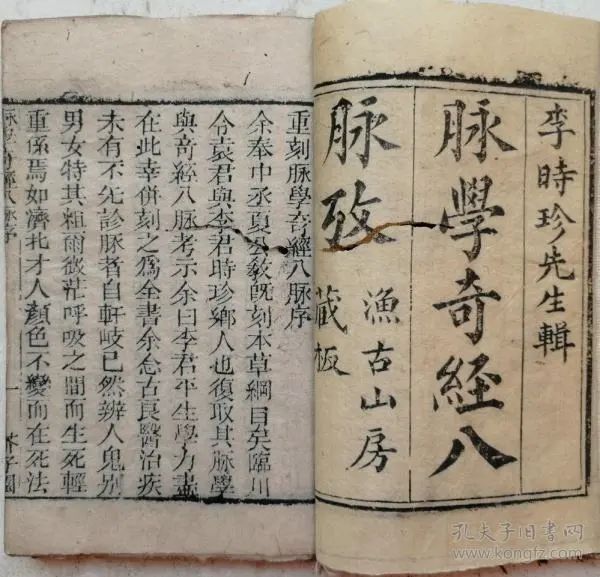 李時珍先生輯
脉學奇經八
脉攷
漁古山房
藏板
重刻脉學奇經八脉序
余奉中丞夏公敎旣刻本草綱目矣臨川
令袁君與李君時珍鄉人也復取其脉學
與奇經八脉考示余曰李君平生學力盡
在此幸併刻之爲全書余念古良醫治疾
未有不先診脉者自軒岐已然辨人鬼别
男女特其粗爾微茫呼吸之間而生死輕
重係焉如濟北才人顔色不變而在死法
脉學奇經八脉序
一
芥子園
孔夫子旧书网
www.kongfz.com